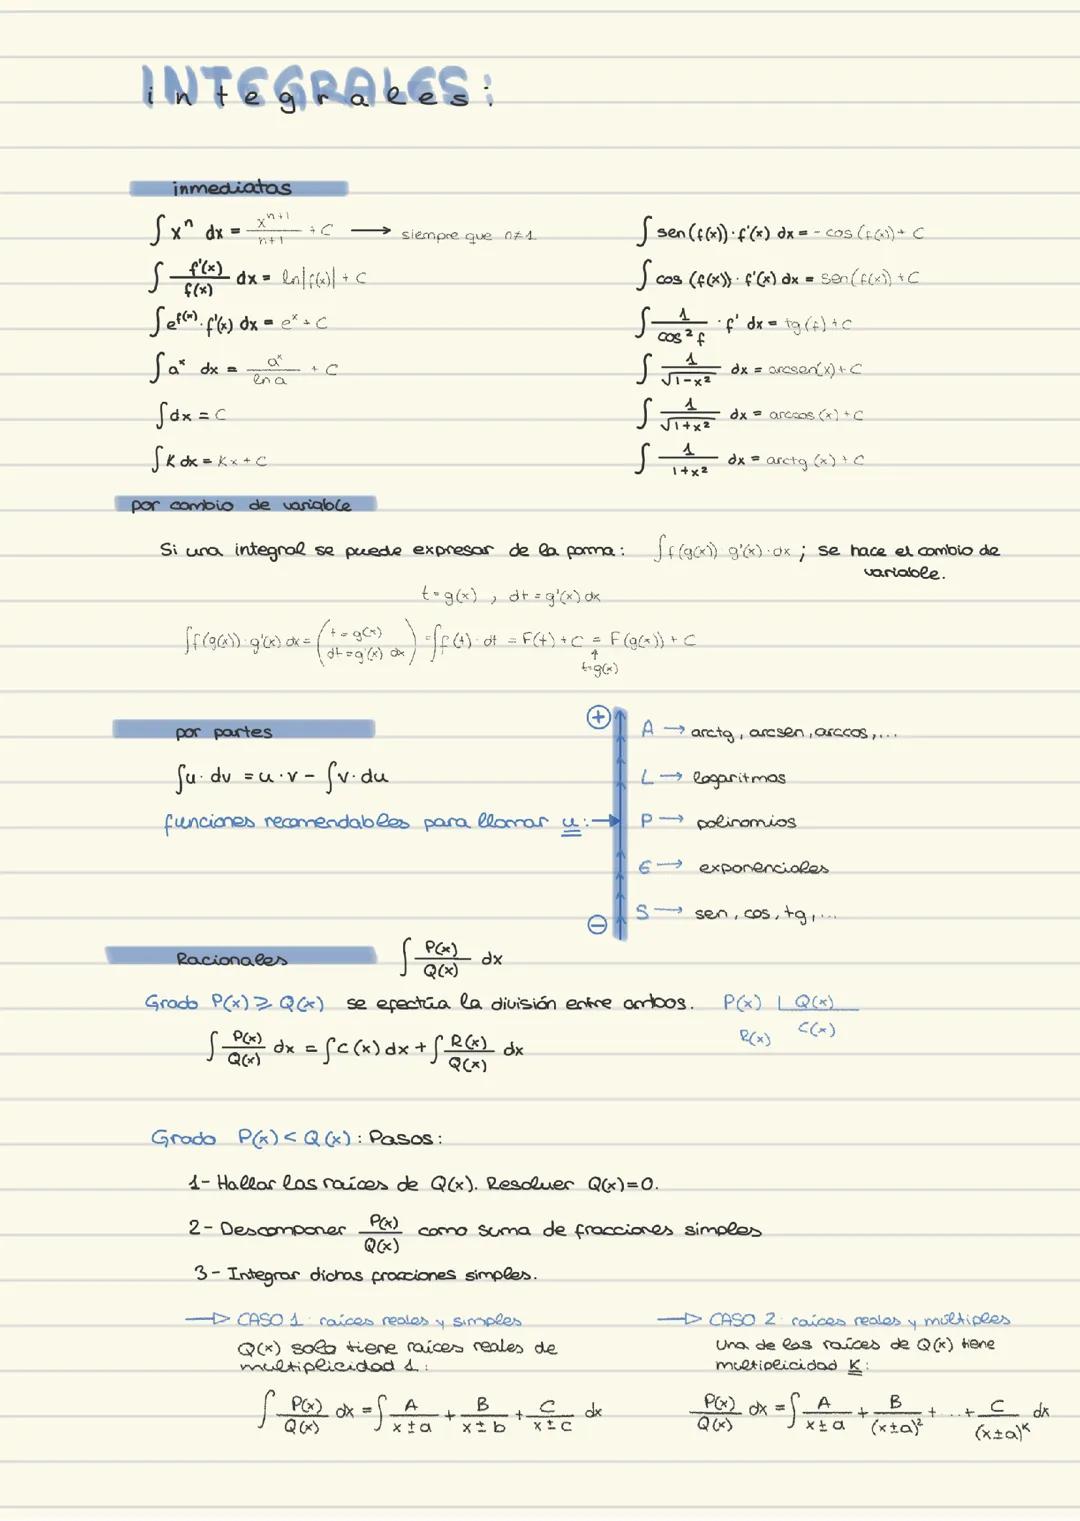 INTEGRALES:
integrales:
inmediatas
∫ xⁿ dx = xⁿ⁺¹/n+1 + C → siempre que n≠1
∫ f'(x)/f(x) dx = ln|f(x)| + C
∫ e^f(x) · f'(x) dx = eˣ + C
∫ aˣ dx = aˣ/ln a + C
∫ dx = C
∫ K dx = Kx + C
∫ sen(f(x)) · f'(x) dx = - cos(f(x)) + C
∫ cos(f(x)) · f'(x) dx = sen(f(x)) + C
∫ 1/cos² f · f' dx = tg(f) + C
∫ 1/√1-x² dx = arcsen(x) + C
∫ 1/√1+x² dx = arccos(x) + C
∫ 1/1+x² dx = arctg(x) + C
por cambio de variable
Si una integral se puede expresar de la forma: ∫ f(g(x)) g'(x) · dx ; se hace el cambio de
variable.
t = g(x) , dt = g'(x) dx
∫ f(g(x)) · g'(x) dx = (t = g(x) dt = g'(x) dx) = ∫ f(t) · dt = F(t) + C = F(g(x)) + C
↑
t=g(x)
por partes
∫ u · dv = u · v - ∫ v · du
funciones recomendables para llamar u: →
+
A → arctg, arcsen, arccos, ...
L → logaritmos
P → polinomios
E → exponenciales
S → sen, cos, tg, ...
-
Racionales ∫ P(x)/Q(x) dx
Grado P(x) ≥ Q(x) se efectúa la división entre ambos. P(x) | Q(x)
R(x) C(x)
∫ P(x)/Q(x) dx = ∫ C(x) dx + ∫ R(x)/Q(x) dx
Grado P(x) < Q(x) : Pasos:
1- Hallar las raíces de Q(x). Resolver Q(x)=0.
2- Descomponer P(x)/Q(x) como suma de fracciones simples
3- Integrar dichas fracciones simples.
→ CASO 1: raíces reales y simples
Q(x) solo tiene raíces reales de
multiplicidad 1:
∫ P(x)/Q(x) dx = ∫ A/x±a + B/x±b + C/x±c dx
→ CASO 2: raíces reales y múltiples
Una de las raíces de Q(x) tiene
multiplicidad K:
P(x)/Q(x) dx = ∫ A/x±a + B/(x±a)² + ... + C/(x±a)ᴷ dx